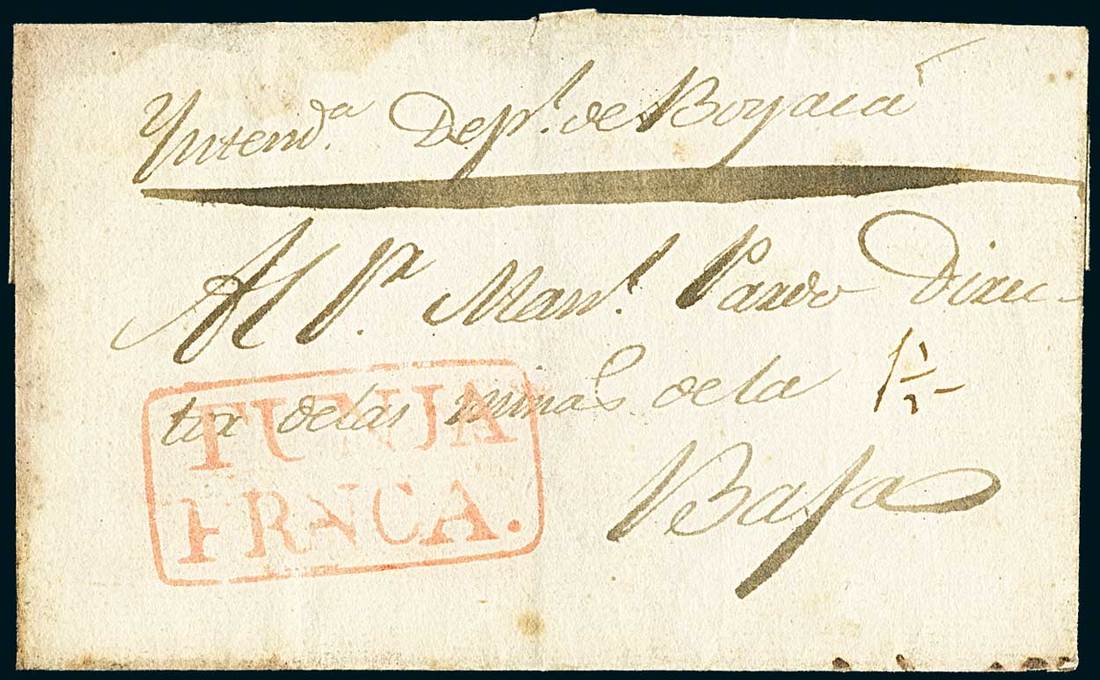 Yntend.ª Dep.ᵗ de Boyacá
Al Sʳ. Man.ˡ Pardo Direc-
tor de las minas de la
1½
Baja
TUNJA
FRNCA.